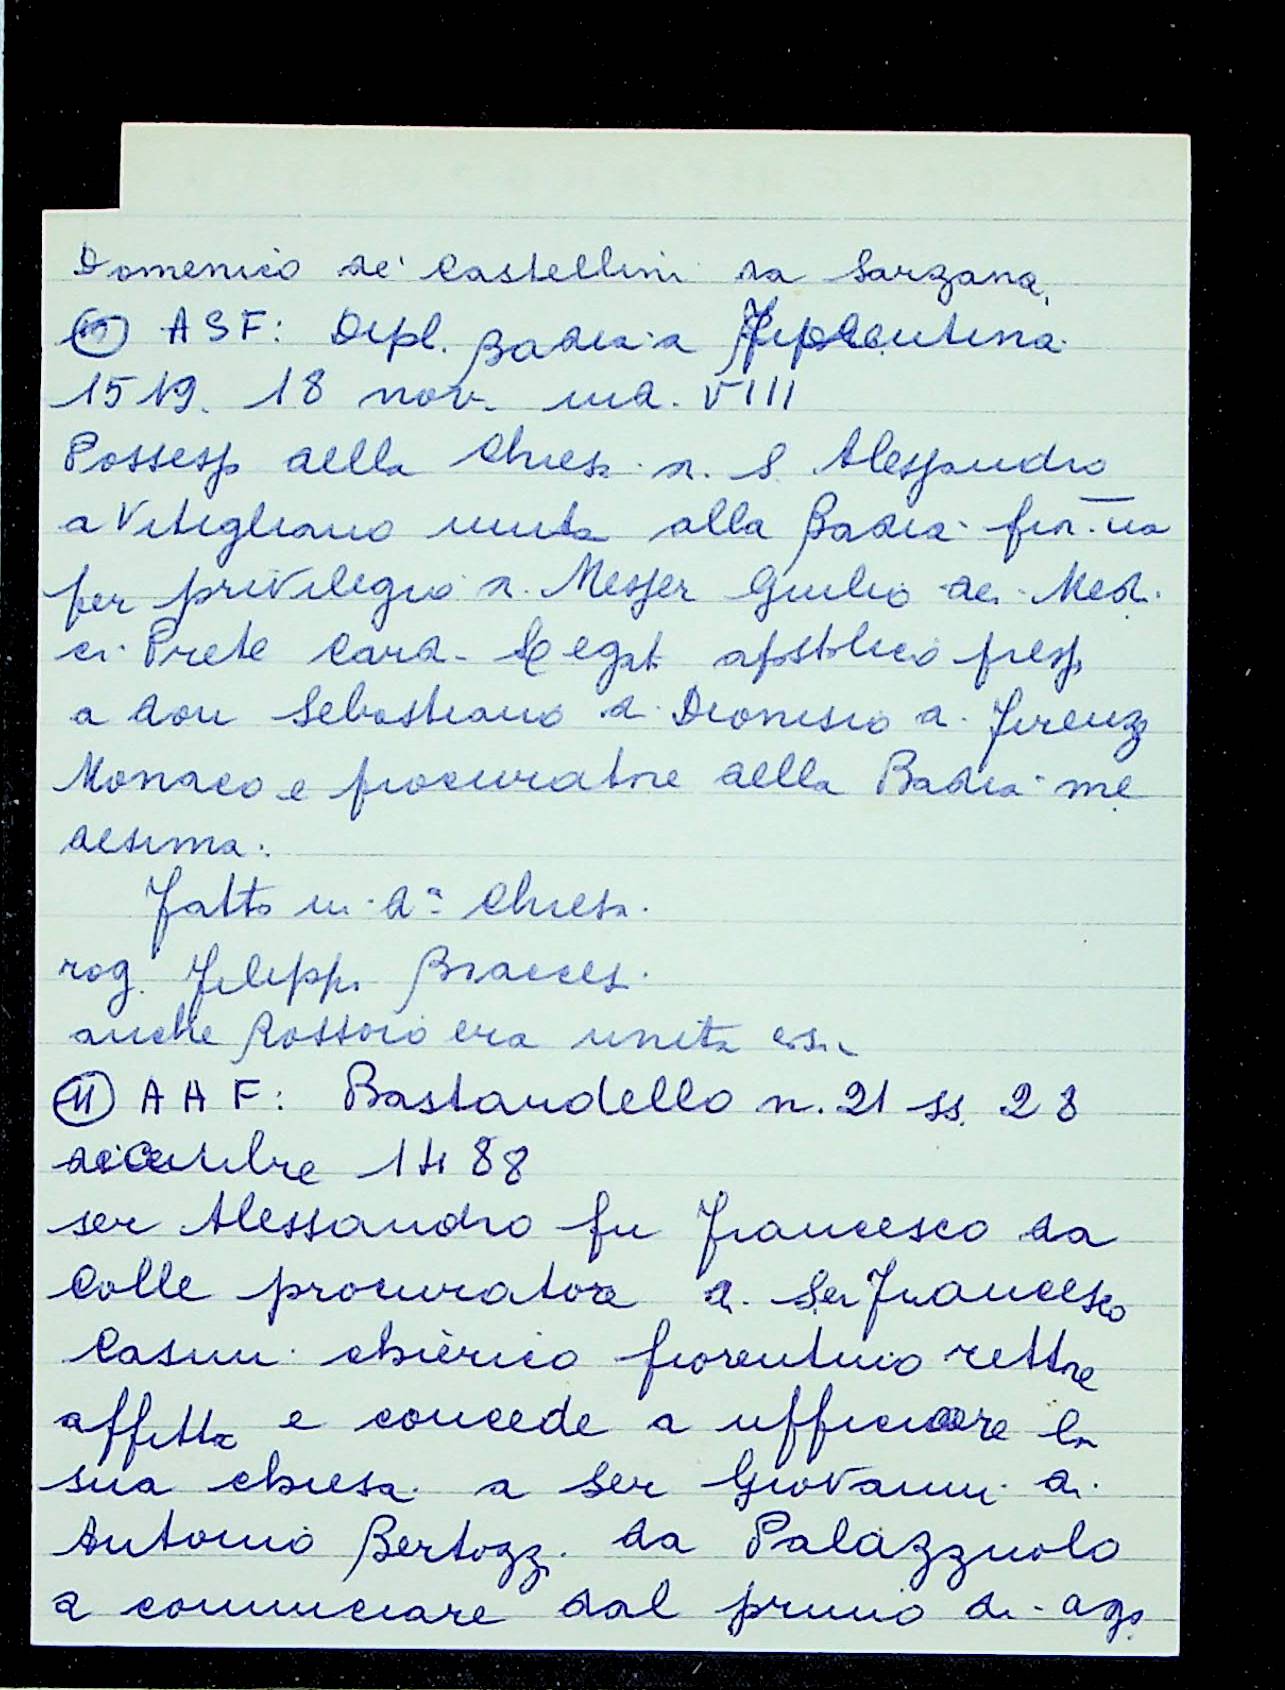 Domenico de' Castellini da Sarzana.
ASF: Dipl. Badia a Fiorentina
1519. 18 nov. ind. VIII
Possesso della Chiesa di S. Alessandro
a Vitigliano unita alla Badia fior.na
per privilegio di Messer Giulio dei Med.
ci Prete Card. Legat apostolico preso
a don Sebastiano di Dionisio di Firenze
Monaco e procuratore della Badia me
desima.
Fatto in da Chiesa.
rog. Filippo Bracces.
anche Rossoio era unita
11 AAF: Bastardello n. 21 ss. 28
dicembre 1488
ser Alessandro fu Francesco da
Colle procuratore di Ser Francesco
Casini chièrico fiorentino rettore
affitta e concede a ufficiare la
sua chiesa a Ser Giovanni di
Antonio Bertozzi da Palazzuolo
a cominciare dal primo di ago